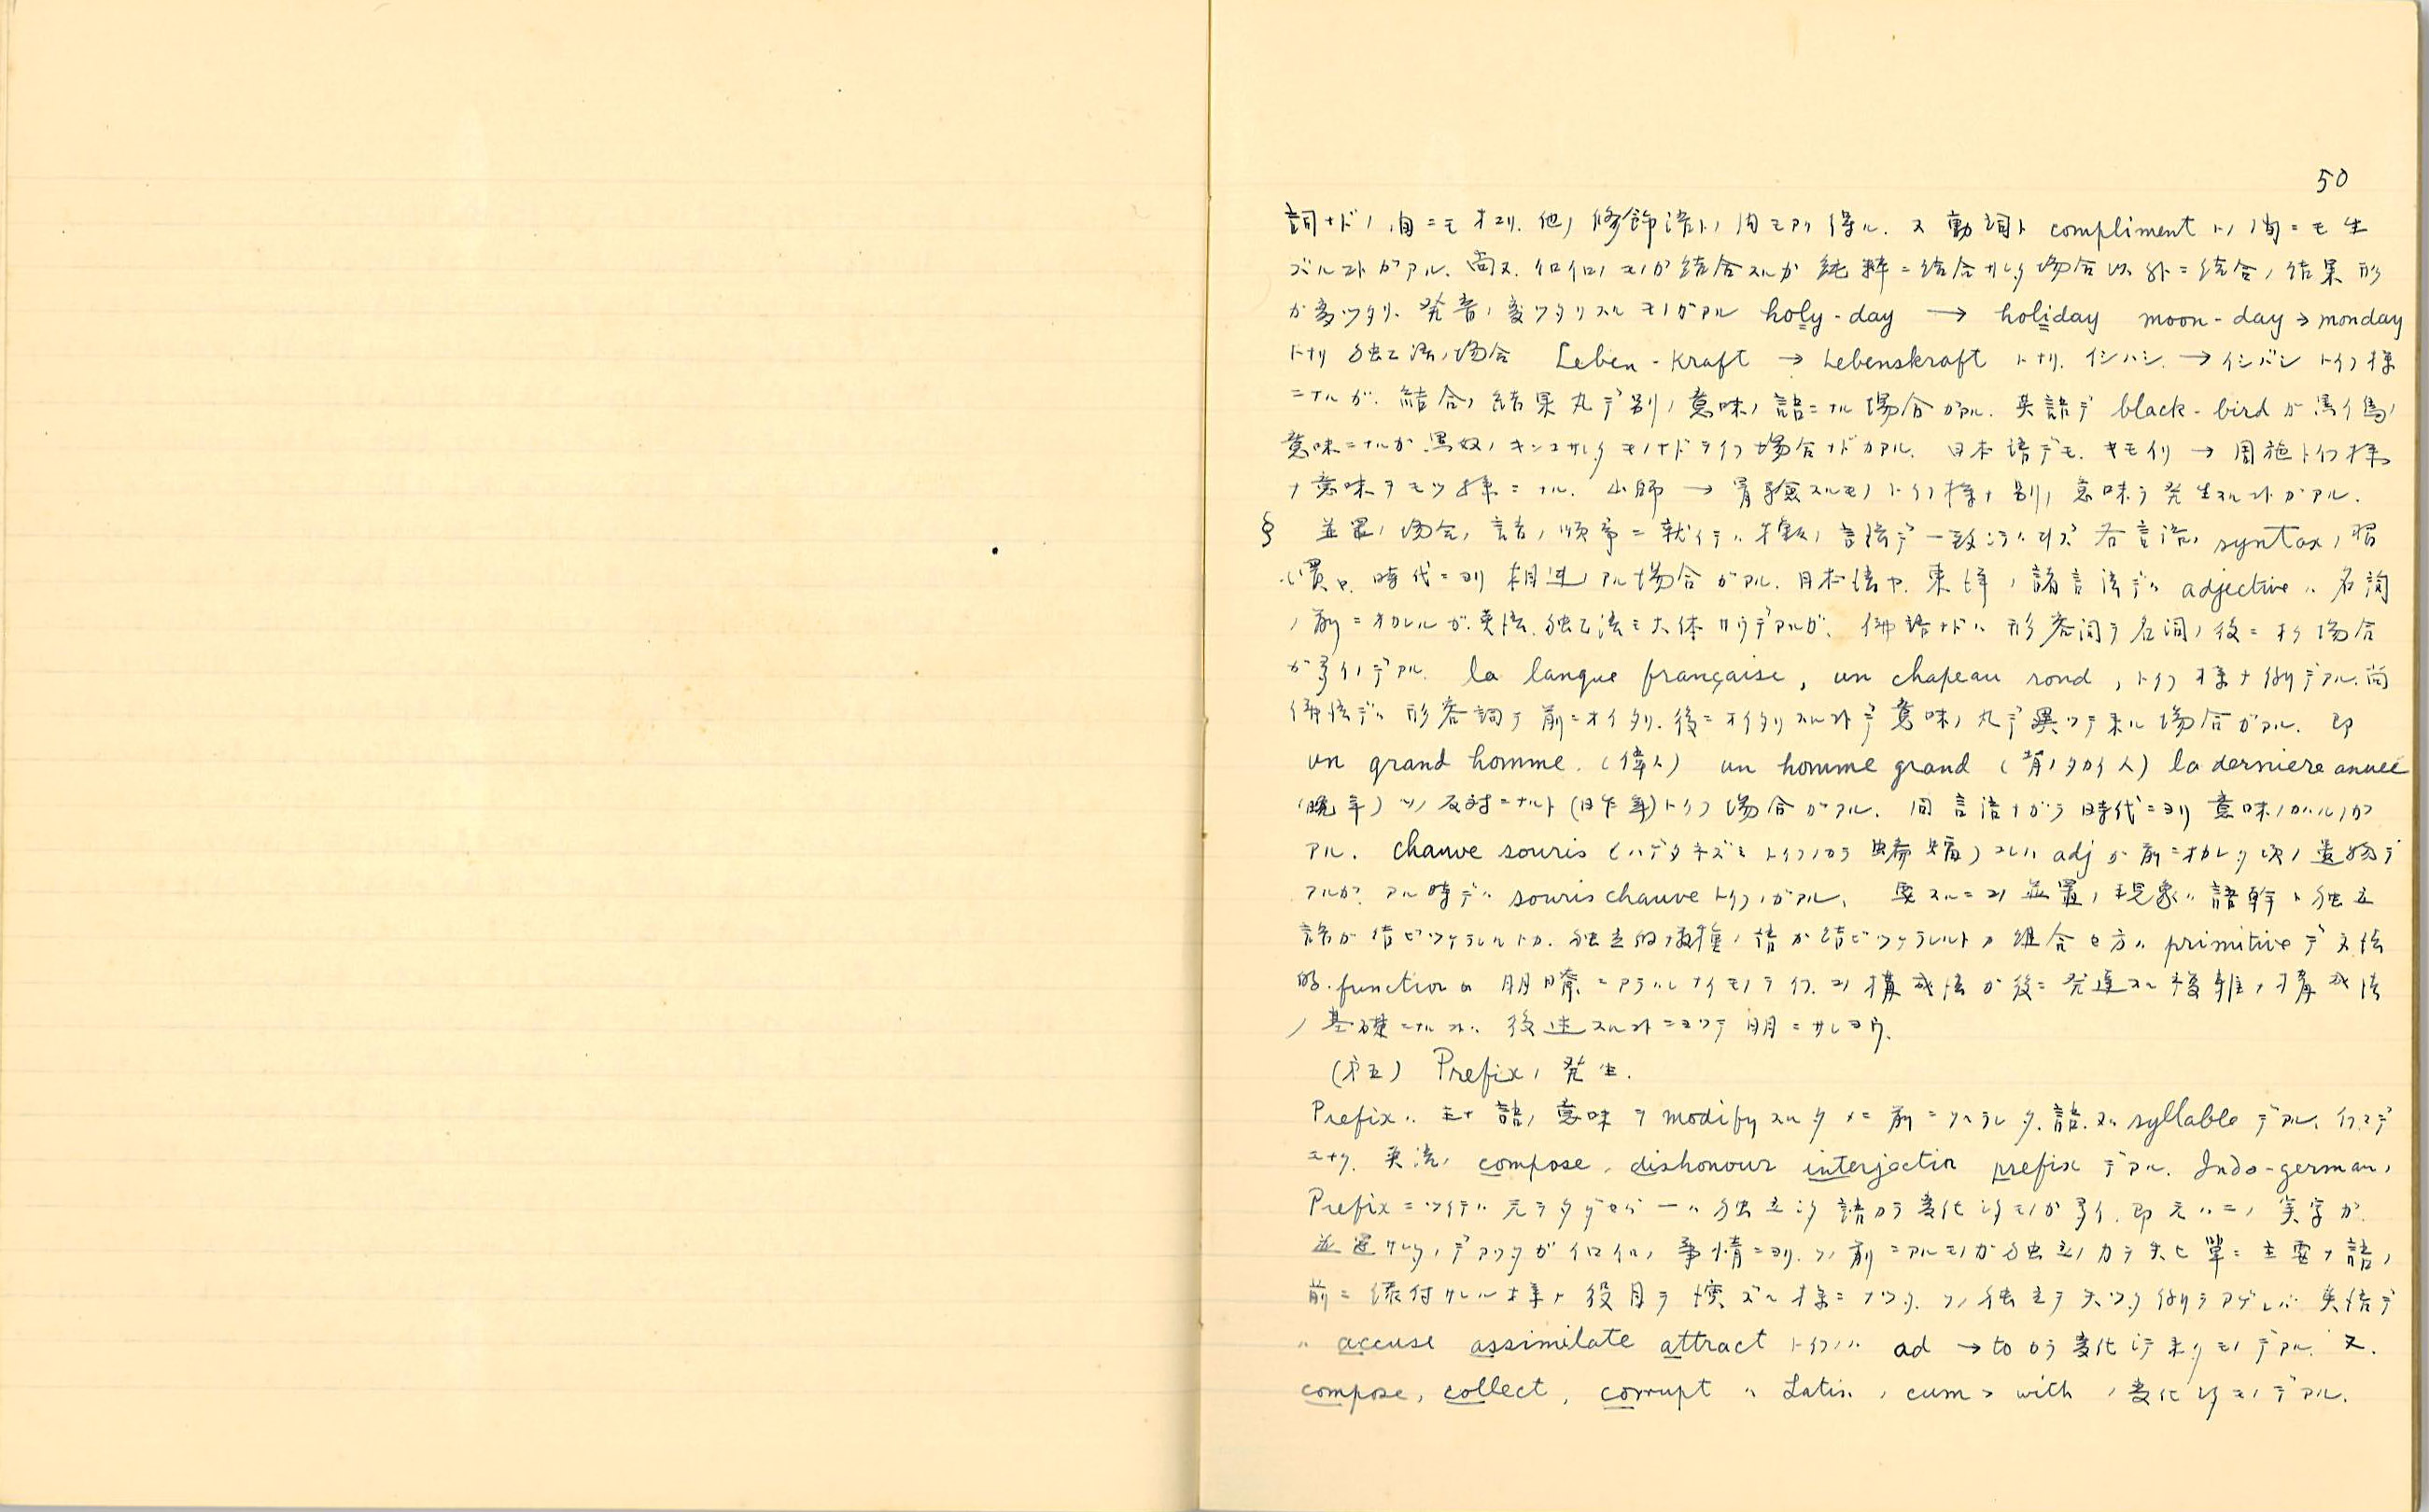 50
詞ナドノ間ニモオコリ.他ノ修飾語トノ間モアリ得ル.又動詞ト compliment トノ間ニモ生
ズルコトガアル.尚又.イロイロノモノガ結合スルガ純粋ニ結合サレタ場合以外ニ結合ノ結果形
ガ変ツタリ、発音ノ変ツタリスルモノガアル holy-day → holiday moon-day → monday
トナリ独乙語ノ場合 Leben-Kraft → Lebenskraft トナリ.イシハシ.→イシバシトイフ様
ニナルガ.結合ノ結果丸デ別ノ意味ノ語ニナル場合ガアル.英語デ black-bird ガ黒イ鳥ノ
意味ニナルガ黒奴ノ モノナドヲイフ場合ナドガアル.日本語デモ.キモイリ→周施トイフ様
ナ意味ヲモツ様ニナル.山師→冒験スルモノトイフ様ナ別ノ意味ヲ発生スルコトガアル.
§ 並置ノ場合ノ語ノ順序ニ就イテハ 言語デ一致シテハヰズ各言語ノ syntax ノ習
慣ヤ.時代ニヨリ相違ノアル場合ガアル.日本語ヤ.東洋ノ諸言語デハ adjective ハ名詞
ノ前ニオカレルガ.英語.独乙語モ大体サウデアルガ、佛語ナドハ形容詞ヲ名詞ノ後ニオク場合
ガ多イノデアル. la langue française, un chapeau rond, トイフ様ナ例デアル.尚
佛語デハ形容詞ヲ前ニオイタリ.後ニオイタリスルコトデ意味ノ丸デ異ツテ来ル場合ガアル.即
un grand homme.(偉人) un homme grand (背ノタカイ人) la derniere année
(晩年)ソノ反対ニナルト(昨年)トイフ場合ガアル.同言語ナガラ時代ニヨリ意味ノカハルノガ
アル. Chauve souris (ハゲタネズミトイフカラ蝙蝠)コレハ adj ガ前ニオカレタ頃ノ遺物デ
アルガ.アル時デハ souris chauve トイフノガアル、要スルニコノ並置ノ現象ハ語幹ト独立
語ガ結ビツケラレルトカ.独立的ナ複種ノ語ガ結ビツケラレルトカ組合セ方ハ primitive デ文法
的 function ハ明瞭ニアラハレナイモノヲイフ.コノ構成法ガ後ニ発達スル複雑ナ構成法
ノ基礎ニナルコトハ後述スルコトニヨツテ明ニサレヨウ.
(第五) Prefix ノ発生.
Prefix ハ主ナ語ノ意味ヲ modify スルタメニ前ニソヘラレタ語又ハ syllable デアル、イフマデ
モナク.英語ノ compose, dishonour interjection prefix デアル. Indo-german ノ
Prefix ニツイテハ元ヲタダセバ一ハ独立シタ語カラ変化シタモノガ多イ.即元ハ二ノ実字ガ
並置サレタノデアツタガイロイロノ事情ニヨリ.ソノ前ニアルモノガ独立ノカヲ失ヒ単ニ主要ナ語ノ
前ニ添付サレル様ナ役目ヲ演ズル様ニナツタ.ソノ独立ヲ失ツタ例ヲアゲレバ英語デ
ハ accuse assimilate attract トイフノハ ad → to カラ変化シテ来タモノデアル.又.
compose, collect, corrupt ハ Latin ノ cum > with ノ変化シタモノデアル.